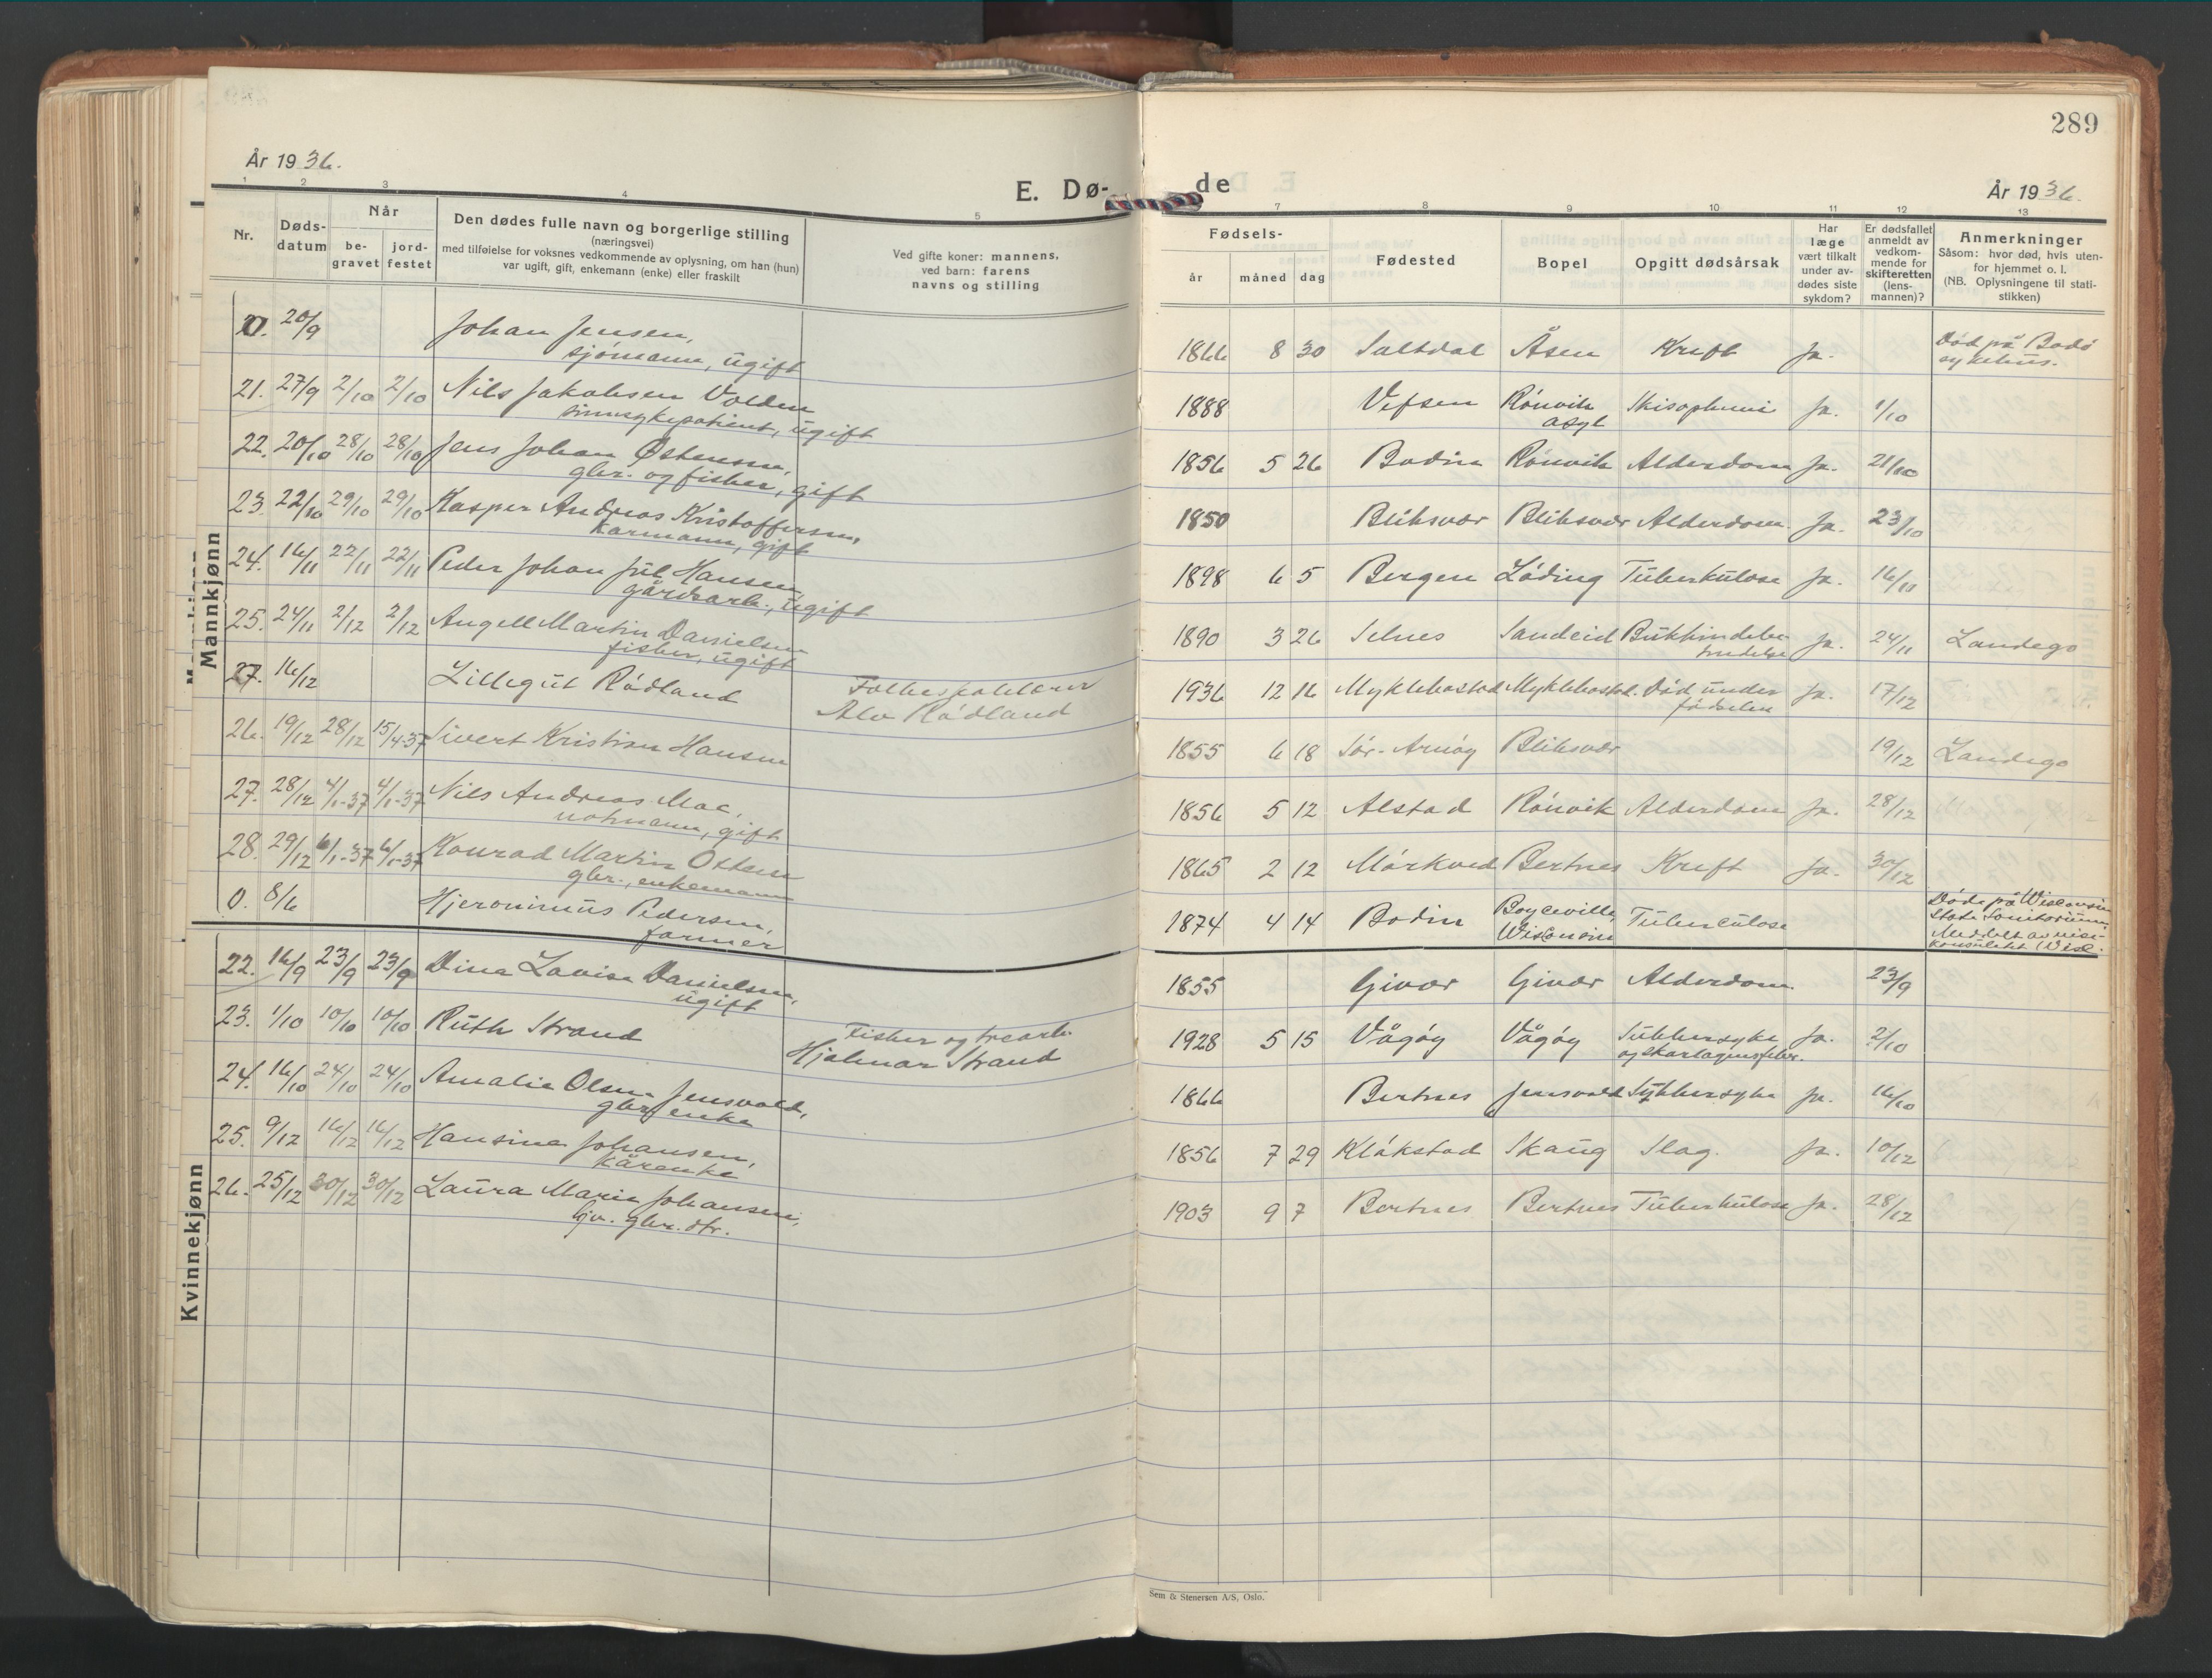 289
År 1936.
E. Dø-
de
År 1936.
1 2 3 4 5 7 8 9 10 11 12 13
Nr.
Døds-
datum
Når
be-
gravet
jord-
festet
Den dødes fulle navn og borgerlige stilling
(næringsvei)
med tilføielse for voksnes vedkommende av oplysning, om han (hun)
var ugift, gift, enkemann (enke) eller fraskilt
Ved gifte koner: mannens,
ved barn: farens
navns og stilling
Fødsels-
år måned dag
Fødested
Bopel
Opgitt dødsårsak
Har
læge
vært tilkalt
under av-
dødes siste
sykdom?
Er dødsfallet
anmeldt av
vedkom-
mende for
skifteretten
(lens-
mannen)?
Anmerkninger
Såsom: hvor død, hvis uten-
for hjemmet o. l.
(NB. Oplysningene til stati-
stikken)
Mannkjønn
0. 20/9 Johan Jensen, 1866 8 30 Saltdal Åsen Kreft Ja. Død på Bodø
sjömann, ugift sykehus.
21. 27/9 2/10 2/10 Nils Jakobsen Volden 1888 Vefsen Rönvik Skisophreni Ja. 1/10
sinnsykepatient, ugift asyl
22. 20/10 28/10 28/10 Jens Johan Østensen, 1856 5 26 Bodin Rönvik Alderdom Ja. 21/10
gbr. og fisker, gift
23. 22/10 29/10 29/10 Kasper Andreas Kristoffersen, 1850 Bliksvær Bliksvær Alderdom. Ja. 23/10
Karmann, gift
24. 16/11 22/11 22/11 Peder Johan Jül Hansen, 1898 6 5 Bergen Löding Tuberkulose Ja. 16/11
gårdsarb., ugift
25. 24/11 2/12 2/12 Angell Martin Danielsen 1890 3 26 Selnes Sandeid Bukhindebe- Ja. 24/11 Landego
fisker, ugift tendelse
27. 16/12 Lillegut Rödland Folkeskolelærer 1936 12 16 Myklebostad Myklebostad. Död under Ja. 17/12
Alv Rödland födselen
26. 19/12 28/12 15/4-37 Sivert Kristian Hansen 1855 6 18 Sör-Arnöy Bliksvær 19/12 Landego
27. 28/12 4/1-37 4/1-37 Nils Andreas Moe, 1856 5 12 Alstad Rönvik Alderdom Ja. 28/12
notmann, gift
28. 29/12 6/1-37 6/1-37 Konrad Martin Ottesen 1865 2 12 Mörkved Bertnes Kreft Ja. 30/12
gbr., enkemann
0. 8/6 Hjeronimus Pedersen, 1874 4 14 Bodin Boyceville, Tuberculose Döde på Wisconsin
farmer Wisconsin State Sanitorium
Meddelt av vise-
konsulatet Wisc.
Kvinnekjønn
22. 16/9 23/9 23/9 Dina Lovise Danielsen, 1855 Givær Givær Alderdom. 23/9
ugift
23. 1/10 10/10 10/10 Ruth Strand Fisker og trearb. 1928 5 15 Vågöy Vågöy Sukkersyke Ja. 2/10
Hjalmar Strand og skarlagensfeber.
24. 16/10 24/10 24/10 Amalie Olsen Jensvold, 1866 Bertnes Jensvold Sukkersyke Ja. 16/10
gbr. enke
25. 9/12 16/12 16/12 Hansine Johansen, 1856 7 29 Klökstad Skaug Slag. Ja. 10/12
kårenke
26. 25/12 30/12 30/12 Laura Marie Johansen, 1903 9 7 Bertnes Bertnes Tuberkulose Ja. 28/12
hjv. gbr. dtr.
Sem & Stenersen A/S, Oslo.